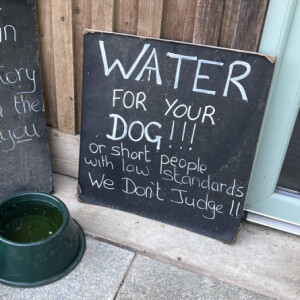 in
tory
n the
you
WATER
FOR YOUR
DOG!!!
or short people
with low standards
We Don't Judge!!